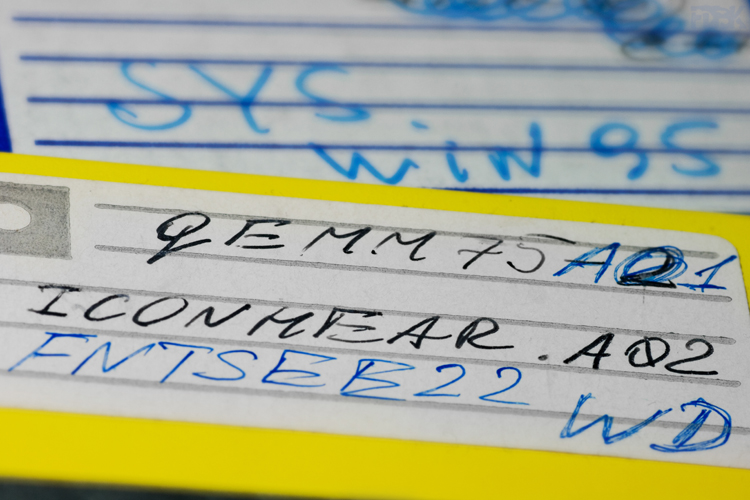 SYS
WIN 95
QEMM 75 A01
ICONHEAR.A02
FNTSEE22 WD